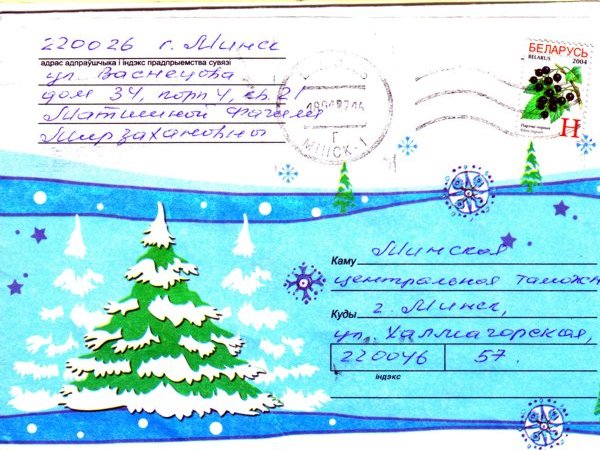 220026 г. Минск
адрас адпраўшчыка і індэкс прадпрыемства сувязі
ул. Васнецова
дом 34, корп 4, кв. 21
Матшиной Фагили
Мирзахановны
БЕЛАРУСЬ
BELARUS 2004
Н
МІНСК-1
Каму Минская
центральная таможн
Куды г. Минск,
ул. Халмагорская,
220046 57.
індэкс